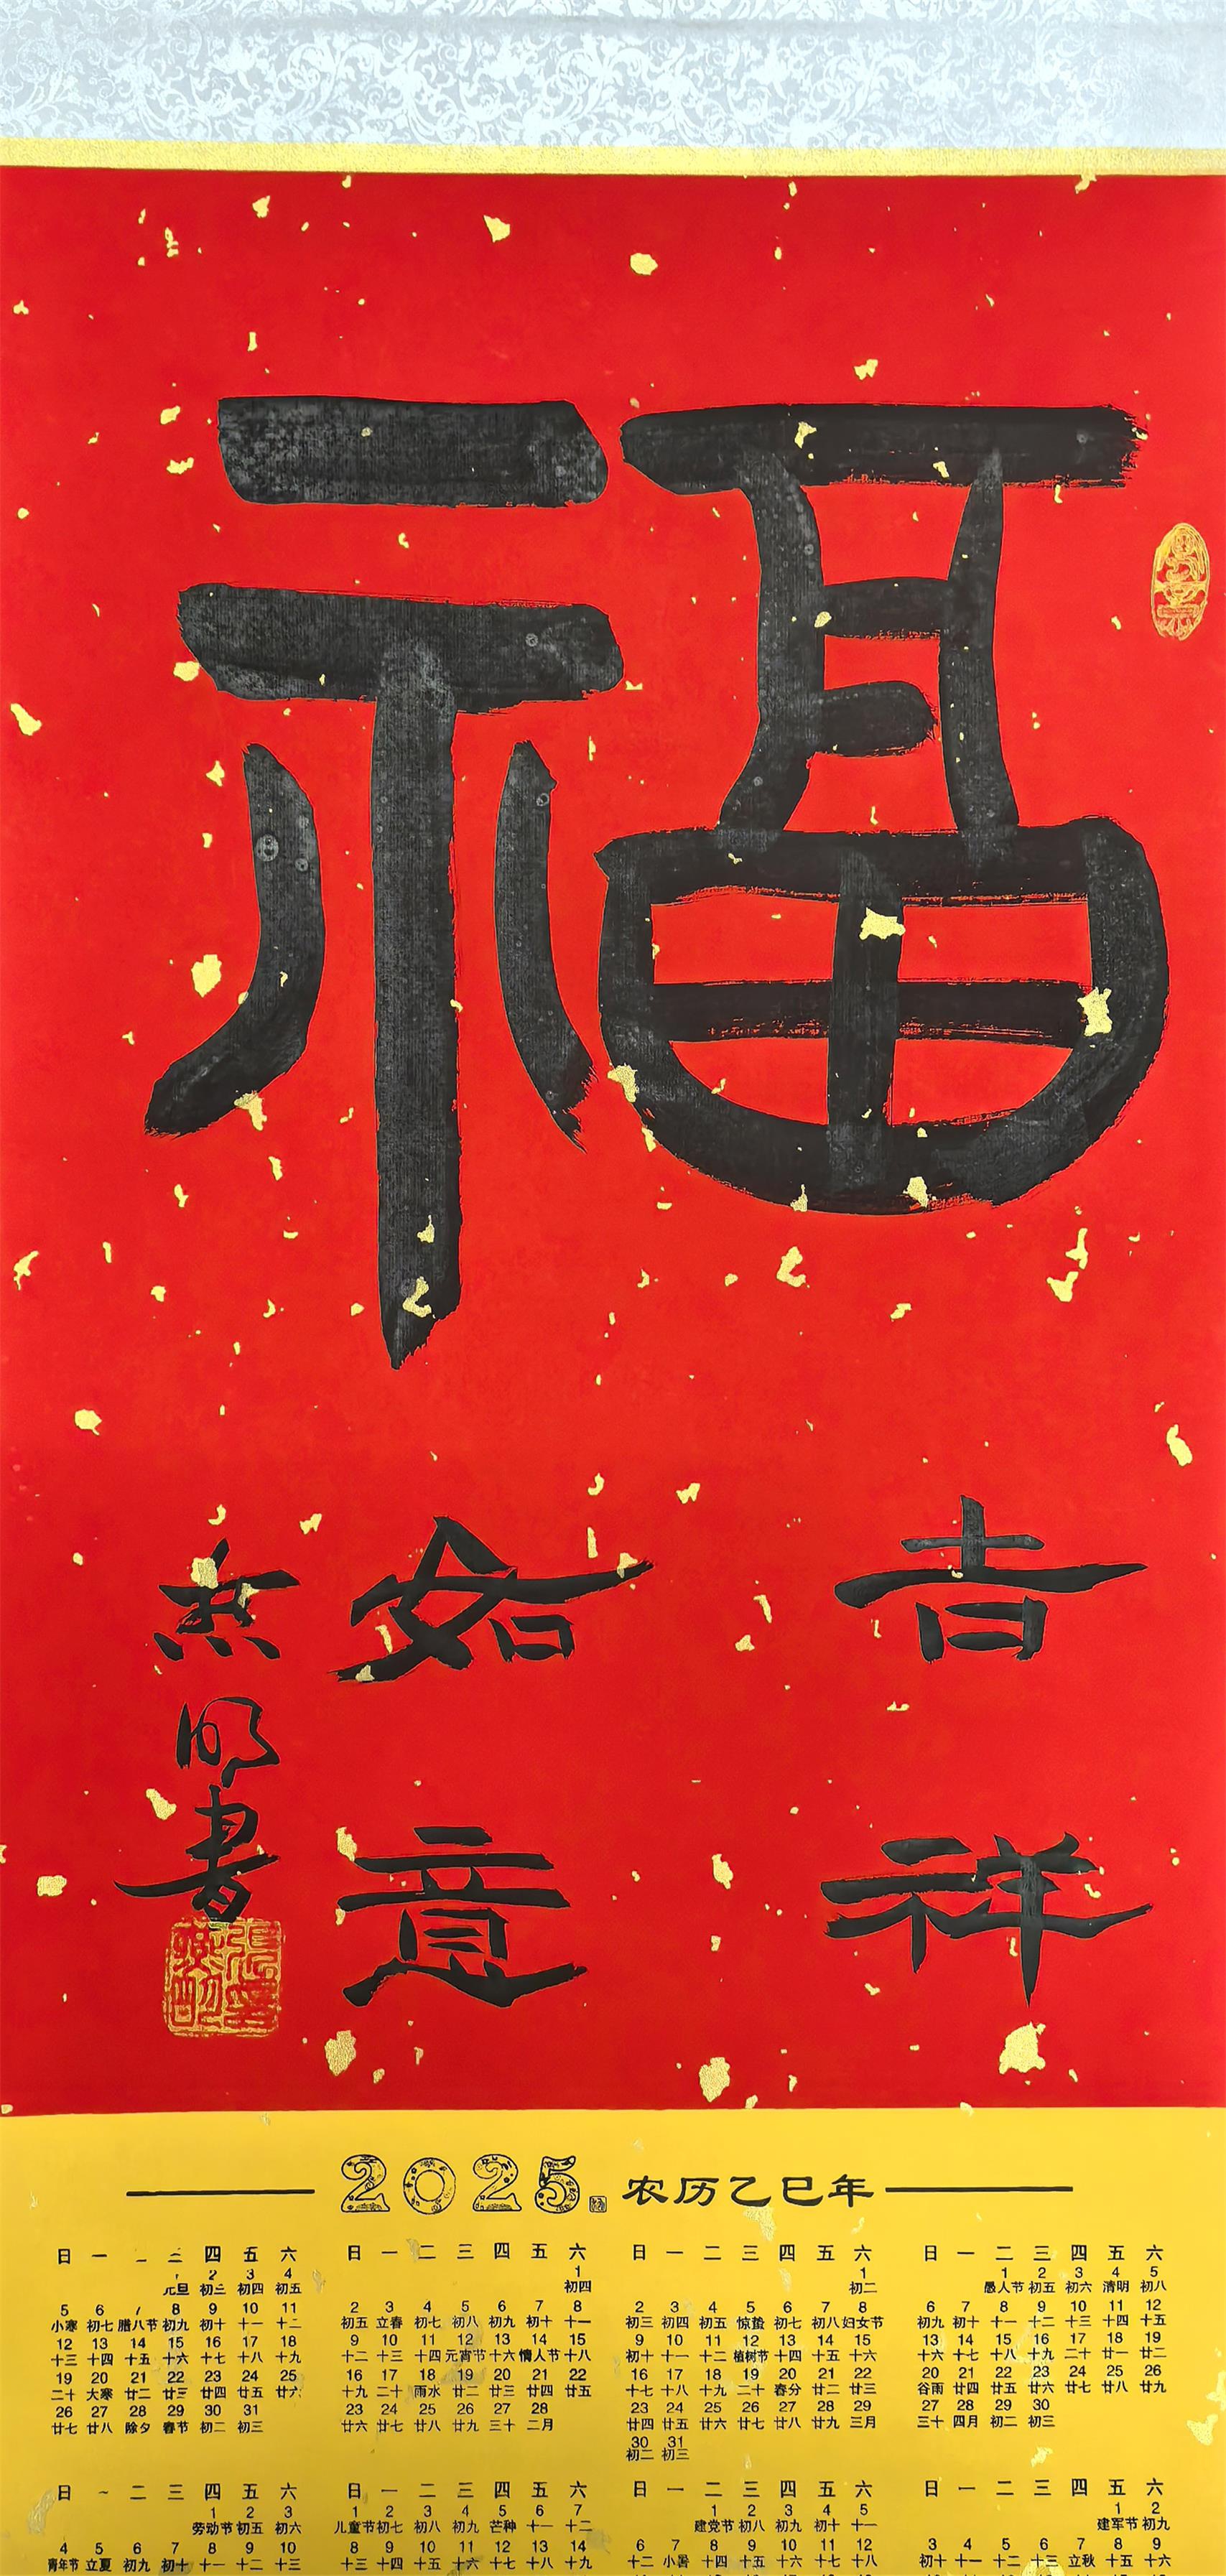 福
吉祥
如意
無明書
2025 农历乙巳年
日 一 二 三 四 五 六
1 2 3 4
元旦 初三 初四 初五
5 6 7 8 9 10 11
小寒 初七 腊八节 初九 初十 十一 十二
12 13 14 15 16 17 18
十三 十四 十五 十六 十七 十八 十九
19 20 21 22 23 24 25
二十 大寒 廿二 廿三 廿四 廿五 廿六
26 27 28 29 30 31
廿七 廿八 除夕 春节 初二 初三
日 一 二 三 四 五 六
1
初四
2 3 4 5 6 7 8
初五 立春 初七 初八 初九 初十 十一
9 10 11 12 13 14 15
十二 十三 十四 元宵节 十六 情人节 十八
16 17 18 19 20 21 22
十九 二十 雨水 廿二 廿三 廿四 廿五
23 24 25 26 27 28
廿六 廿七 廿八 廿九 三十 二月
日 一 二 三 四 五 六
1
初二
2 3 4 5 6 7 8
初三 初四 初五 惊蛰 初七 初八 妇女节
9 10 11 12 13 14 15
初十 十一 十二 植树节 十四 十五 十六
16 17 18 19 20 21 22
十七 十八 十九 二十 春分 廿二 廿三
23 24 25 26 27 28 29
廿四 廿五 廿六 廿七 廿八 廿九 三月
30 31
初二 初三
日 一 二 三 四 五 六
1 2 3 4 5
愚人节 初五 初六 清明 初八
6 7 8 9 10 11 12
初九 初十 十一 十二 十三 十四 十五
13 14 15 16 17 18 19
十六 十七 十八 十九 二十 廿一 廿二
20 21 22 23 24 25 26
谷雨 廿四 廿五 廿六 廿七 廿八 廿九
27 28 29 30
三十 四月 初二 初三
日 一 二 三 四 五 六
1 2 3
劳动节 初五 初六
4 5 6 7 8 9 10
青年节 立夏 初九 初十 十一 十二 十三
日 一 二 三 四 五 六
1 2 3 4 5 6 7
儿童节 初七 初八 初九 芒种 十一 十二
8 9 10 11 12 13 14
十三 十四 十五 十六 十七 十八 十九
日 一 二 三 四 五 六
1 2 3 4 5
建党节 初八 初九 初十 十一
6 7 8 9 10 11 12
十二 小暑 十四 十五 十六 十七 十八
日 一 二 三 四 五 六
1 2
建军节 初九
3 4 5 6 7 8 9
初十 十一 十二 十三 立秋 十五 十六